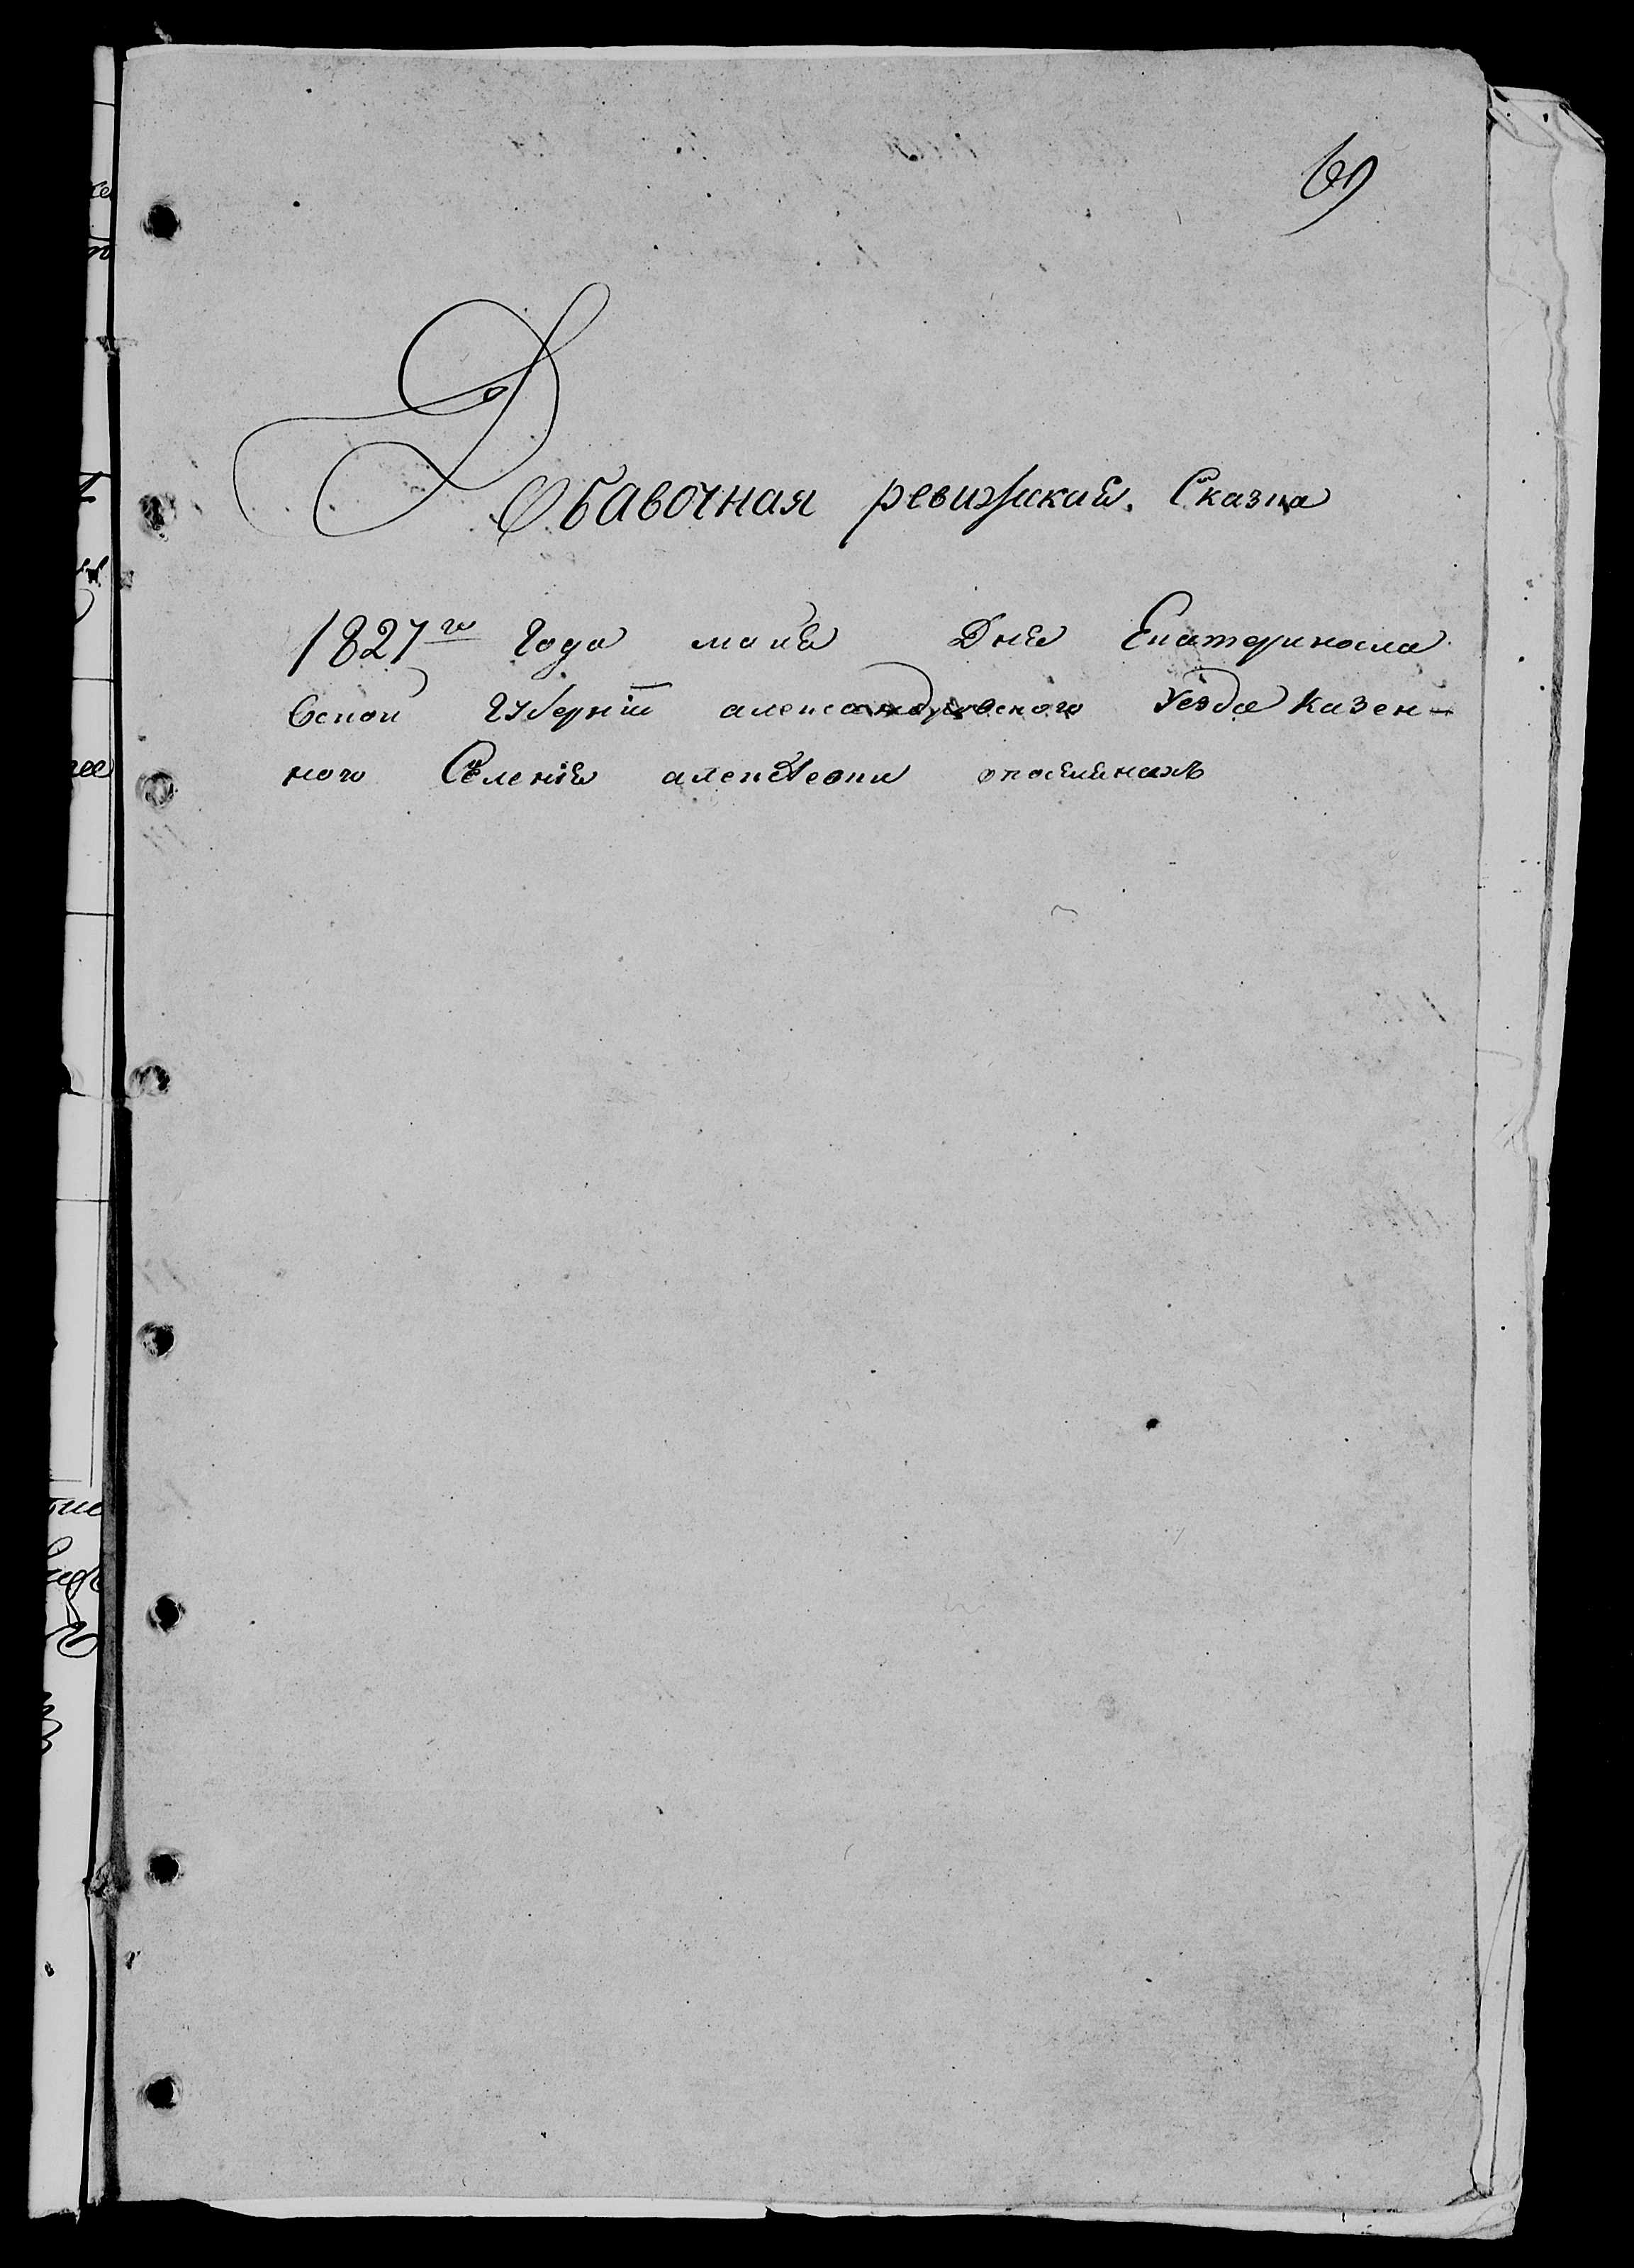 69
Добавочная ревижская Сказка
1827го Года мая Дня Екатериносла
вской Губерніи александровского уезда казен-
ного Селения алексеевки